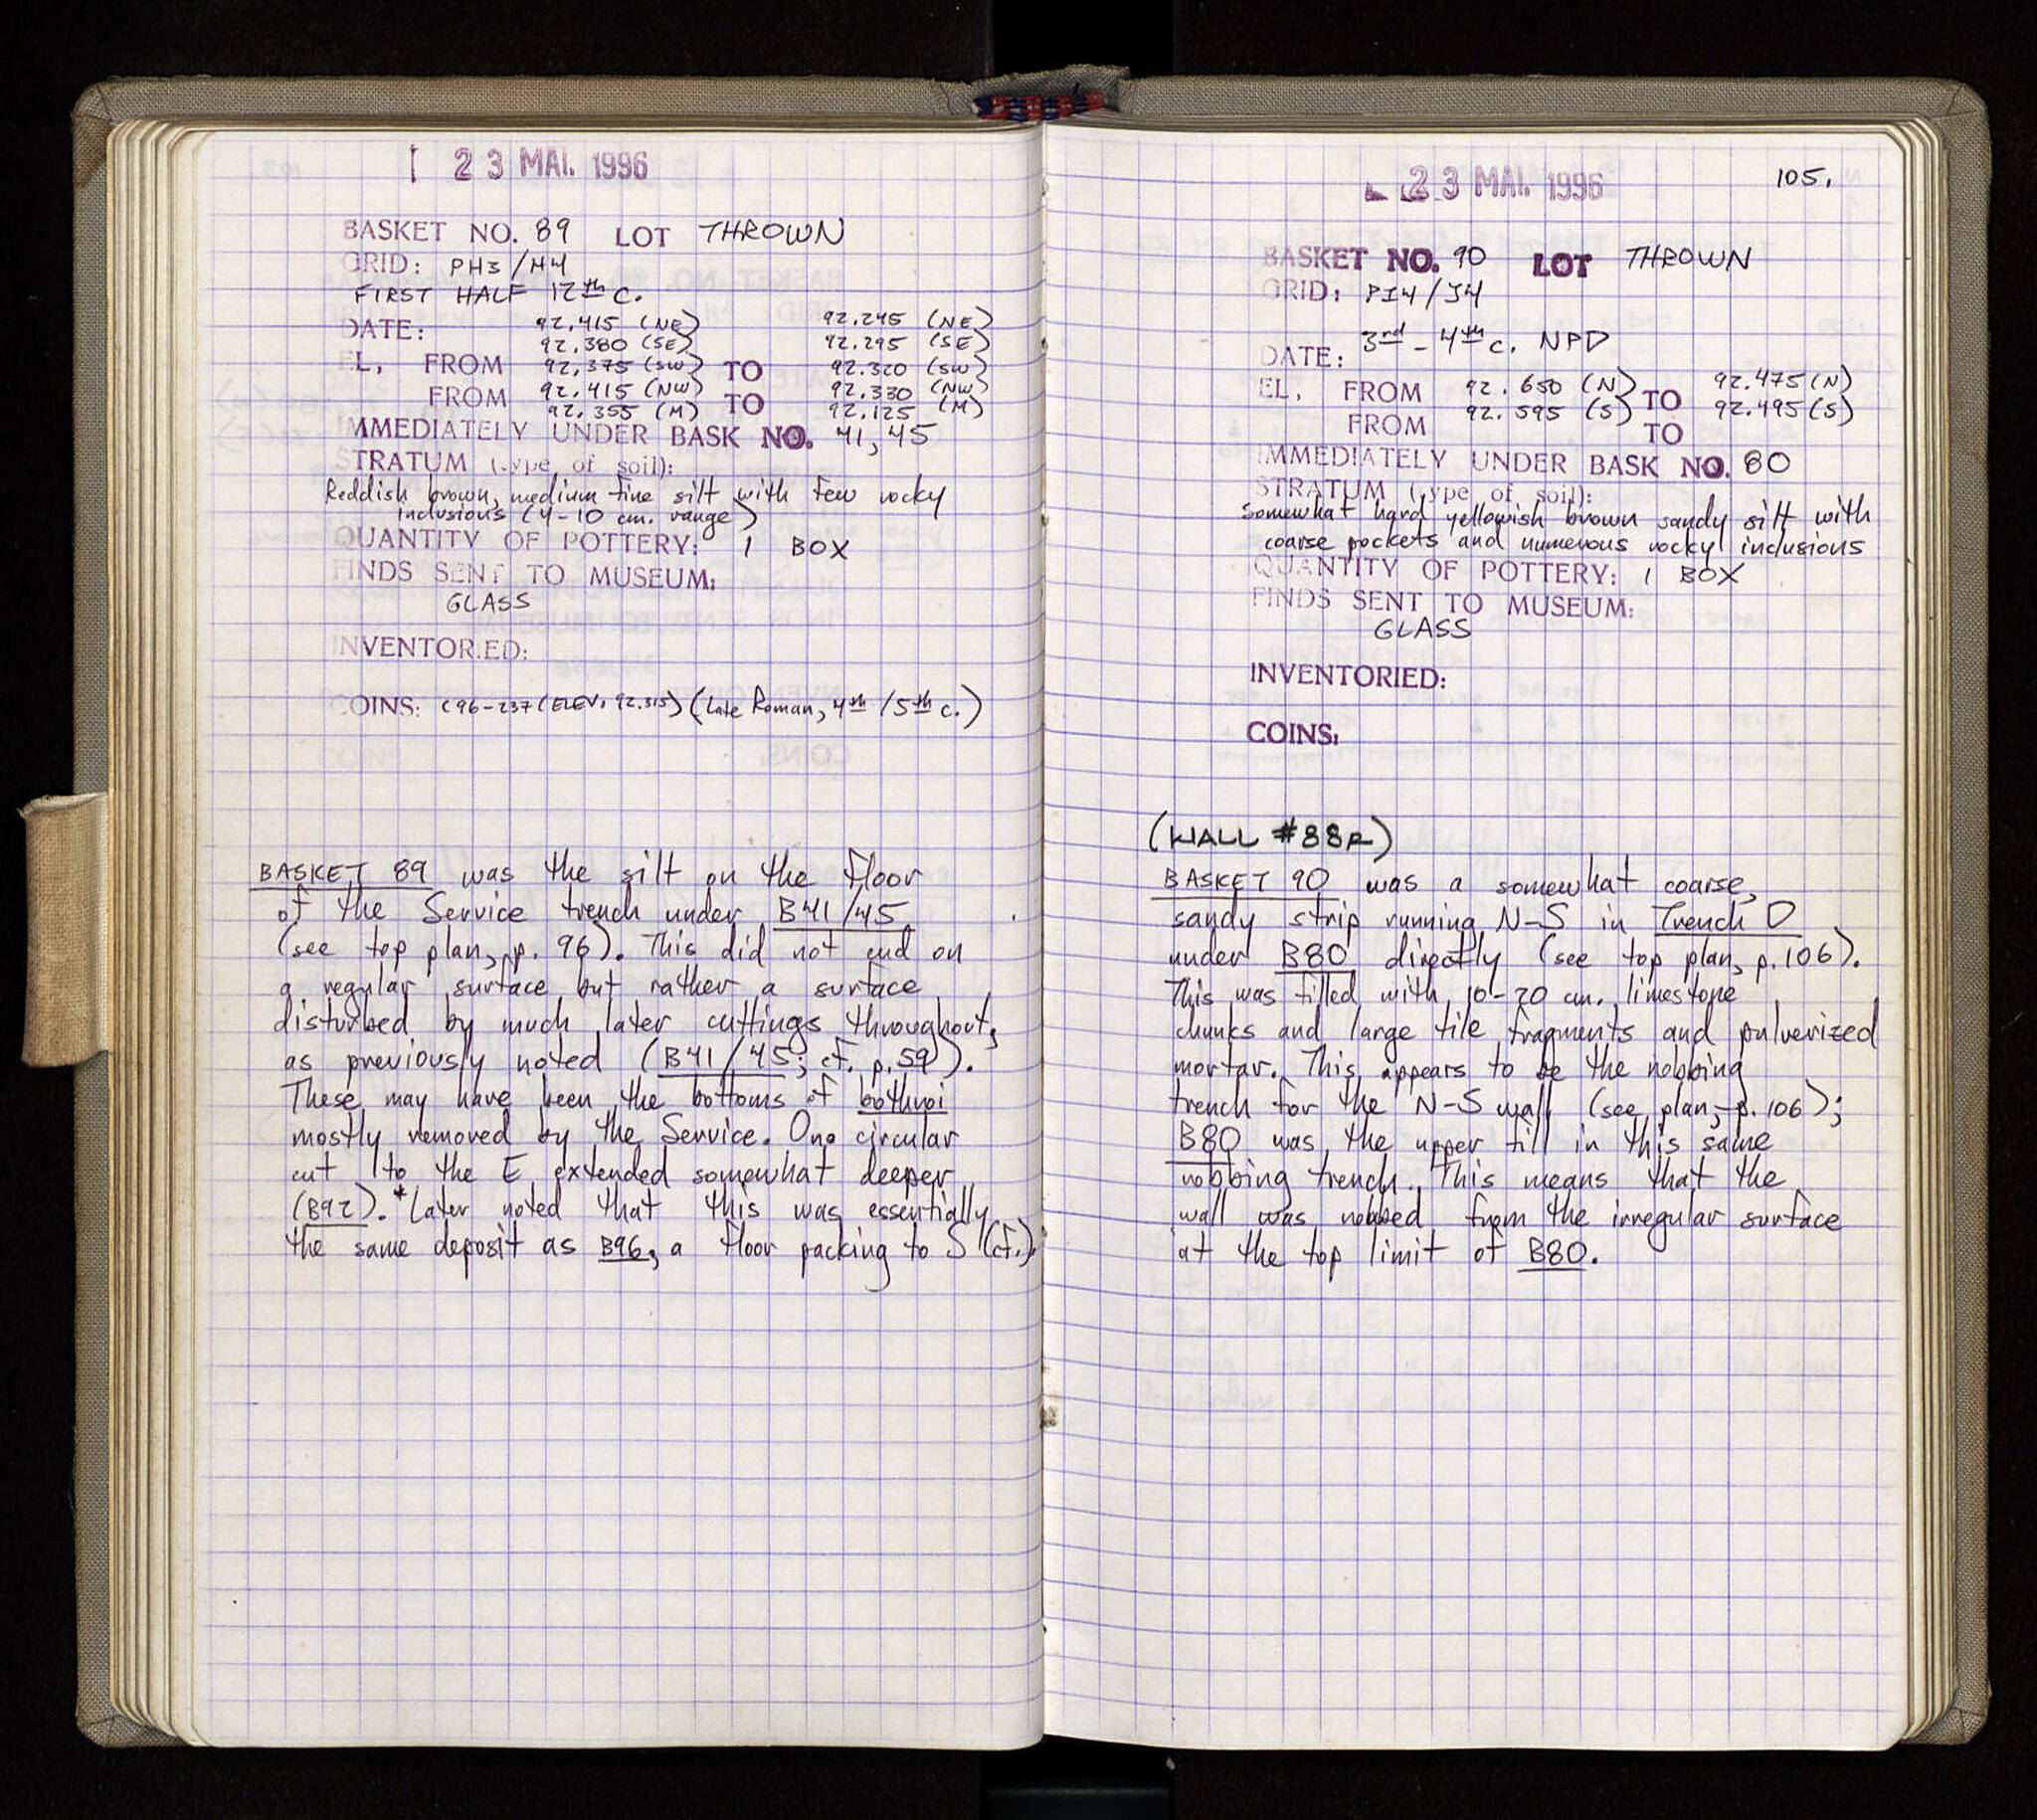 23 MAI. 1996
BASKET NO. 89 LOT THROWN
GRID: PH3/H4
FIRST HALF 12th C.
DATE:
92.415 (NE) 92.245 (NE)
92.380 (SE) 92.295 (SE)
EL, FROM 92.375 (SW) TO 92.320 (SW)
FROM 92.415 (NW) TO 92.330 (NW)
92.355 (M) 92.125 (M)
IMMEDIATELY UNDER BASK NO. 41, 45
STRATUM (type of soil):
Reddish brown, medium fine silt with few rocky
inclusions (4-10 cm. range)
QUANTITY OF POTTERY: 1 BOX
FINDS SENT TO MUSEUM:
GLASS
INVENTORIED:
COINS: C96-237 (ELEV, 92.315) (Late Roman, 4th/5th c.)
BASKET 89 was the silt on the floor
of the Service trench under B41/45
(see top plan, p. 96). This did not end on
a regular surface but rather a surface
disturbed by much later cuttings throughout,
as previously noted (B41/45; cf. p.59).
These may have been the bottoms of bothroi
mostly removed by the Service. One circular
cut to the E extended somewhat deeper
(B92). *Later noted that this was essentially
the same deposit as B96, a floor packing to S (cf.).
23 MAI. 1996
105.
BASKET NO. 90 LOT THROWN
GRID: PI4/J4
3rd - 4th c. NPD
DATE:
EL, FROM 92.650 (N) TO 92.475 (N)
FROM 92.595 (S) TO 92.495 (S)
IMMEDIATELY UNDER BASK NO. 80
STRATUM (type of soil):
Somewhat hard yellowish brown sandy silt with
coarse pockets and numerous rocky inclusions
QUANTITY OF POTTERY: 1 BOX
FINDS SENT TO MUSEUM:
GLASS
INVENTORIED:
COINS:
(WALL #88R)
BASKET 90 was a somewhat coarse,
sandy strip running N-S in Trench D
under B80 directly (see top plan, p.106).
This was filled with 10-20 cm. limestone
chunks and large tile fragments and pulverized
mortar. This appears to be the robbing
trench for the N-S wall (see plan, p. 106);
B80 was the upper fill in this same
robbing trench. This means that the
wall was robbed from the irregular surface
at the top limit of B80.